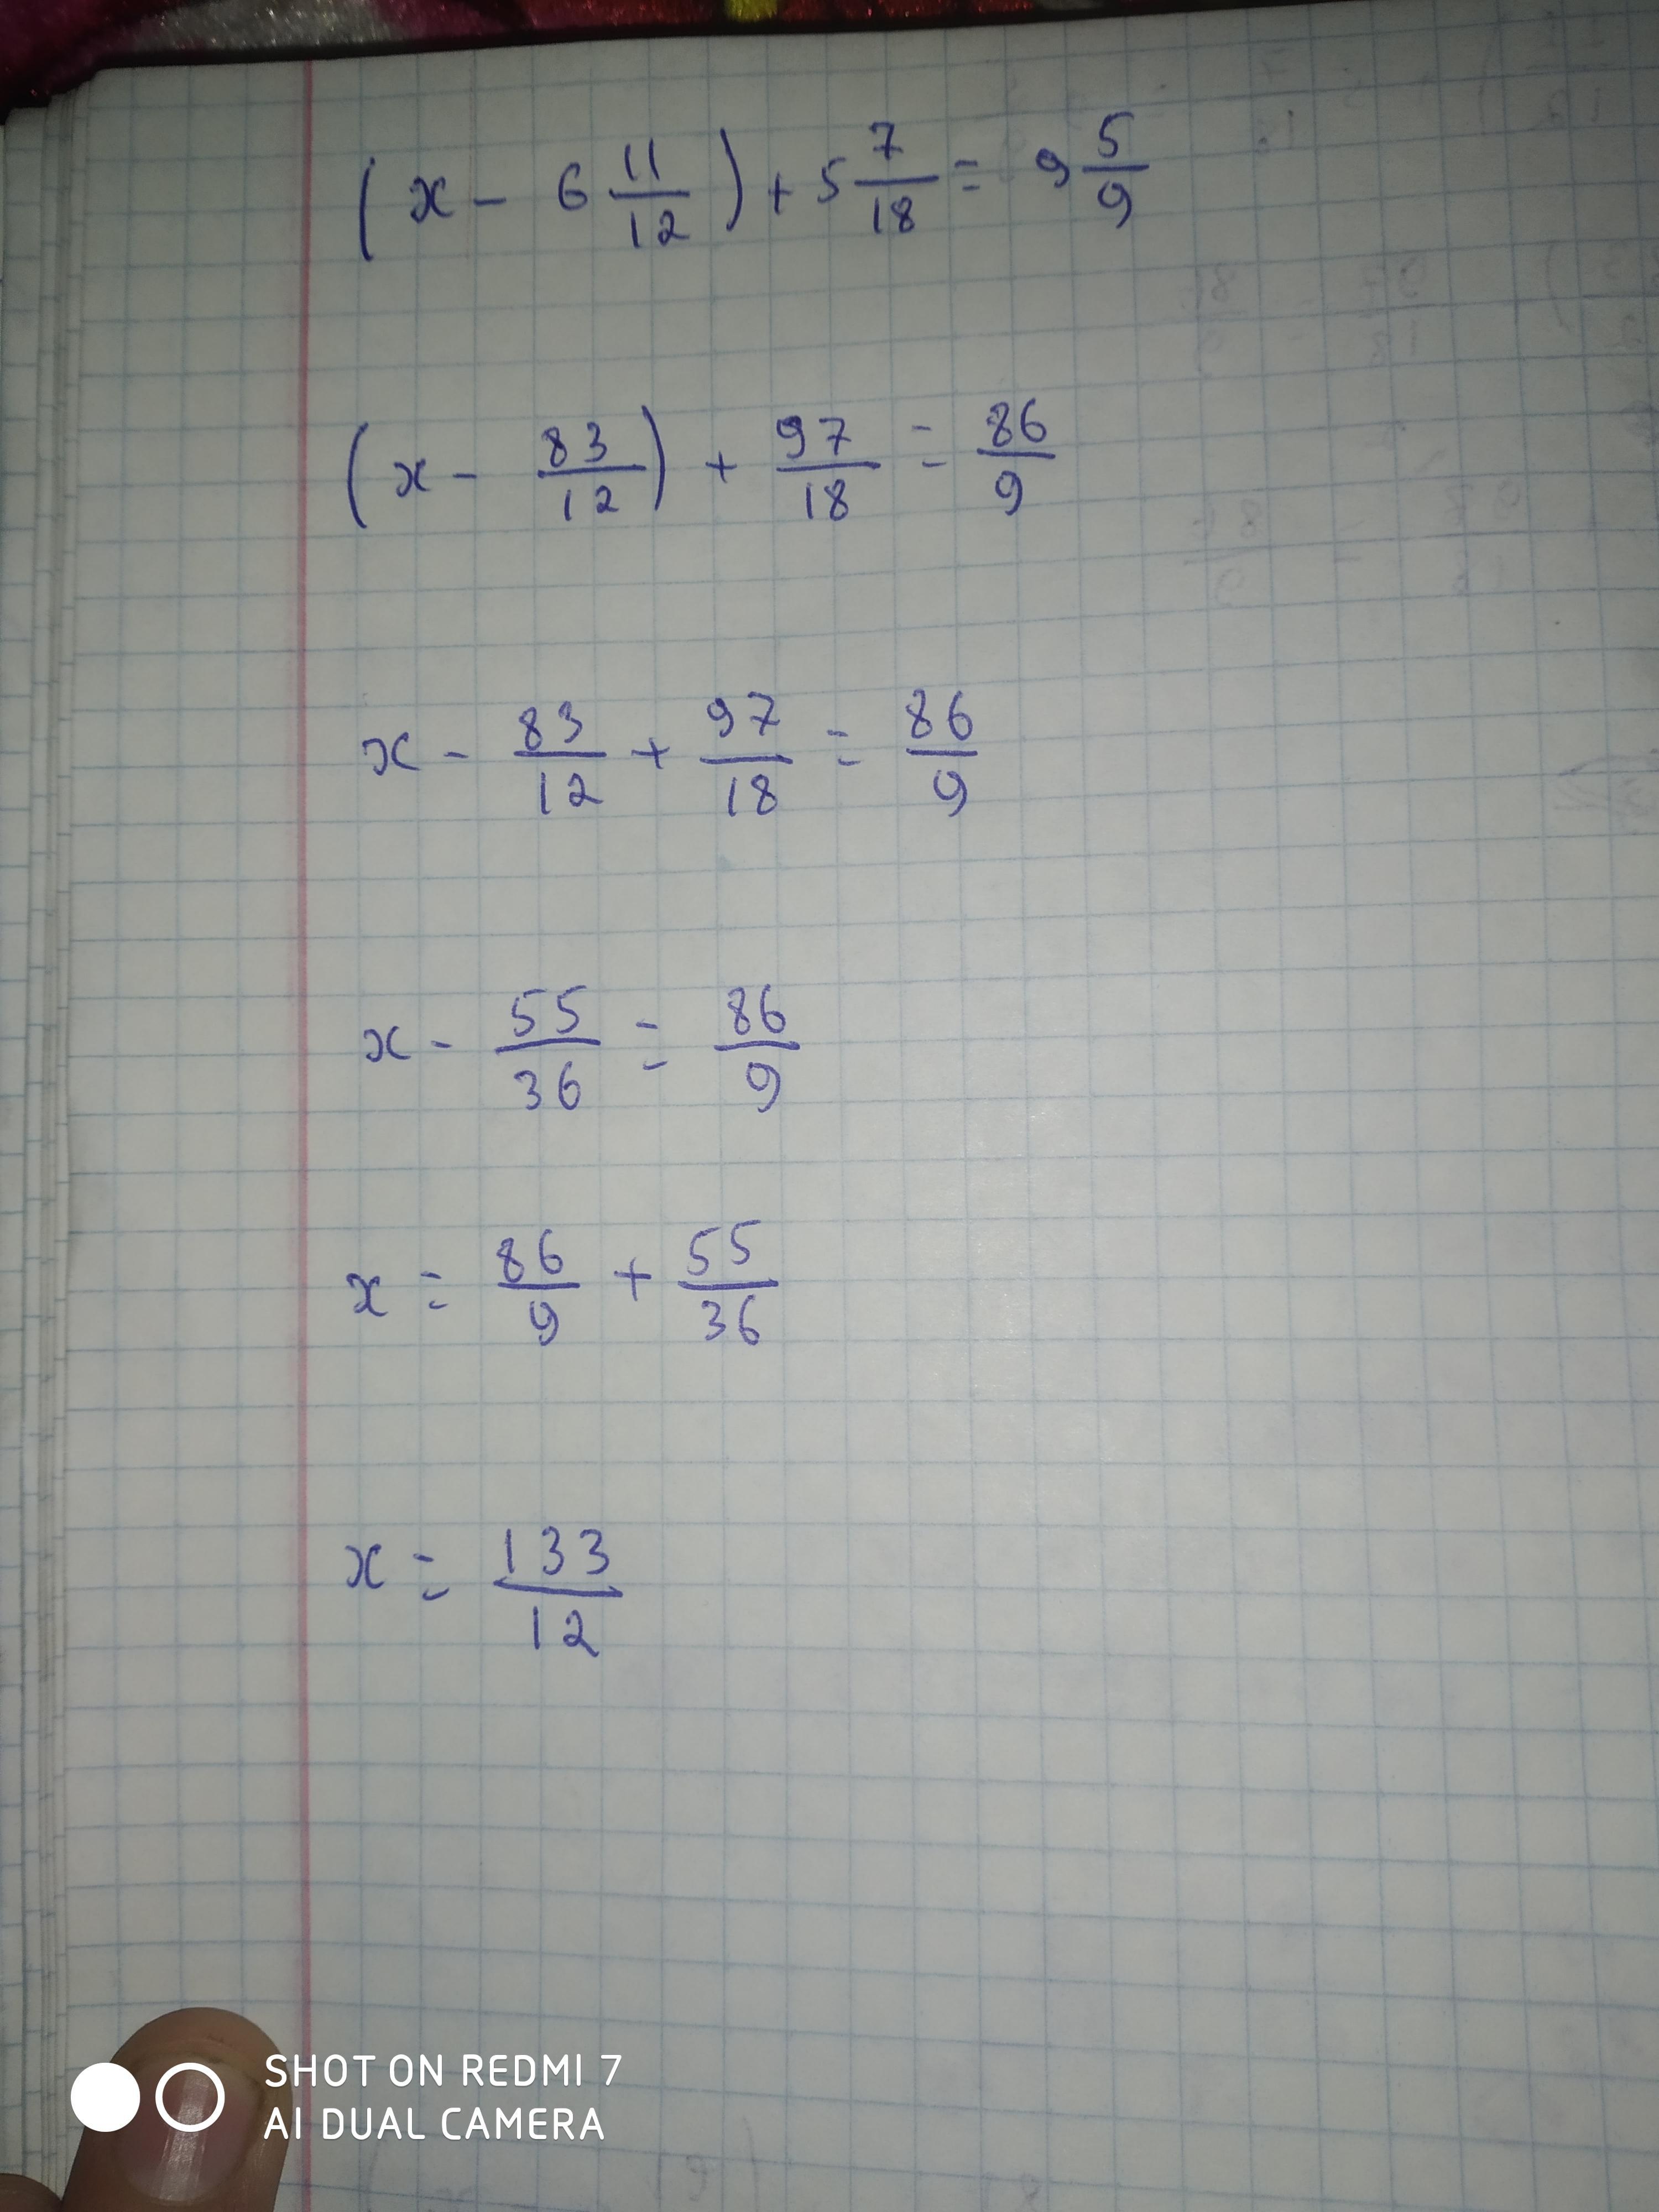 (x - 6 11/12) + 5 7/18 = 9 5/9
(x - 83/12) + 97/18 = 86/9
x - 83/12 + 97/18 = 86/9
x - 55/36 = 86/9
x = 86/9 + 55/36
x = 133/12
SHOT ON REDMI 7
AI DUAL CAMERA